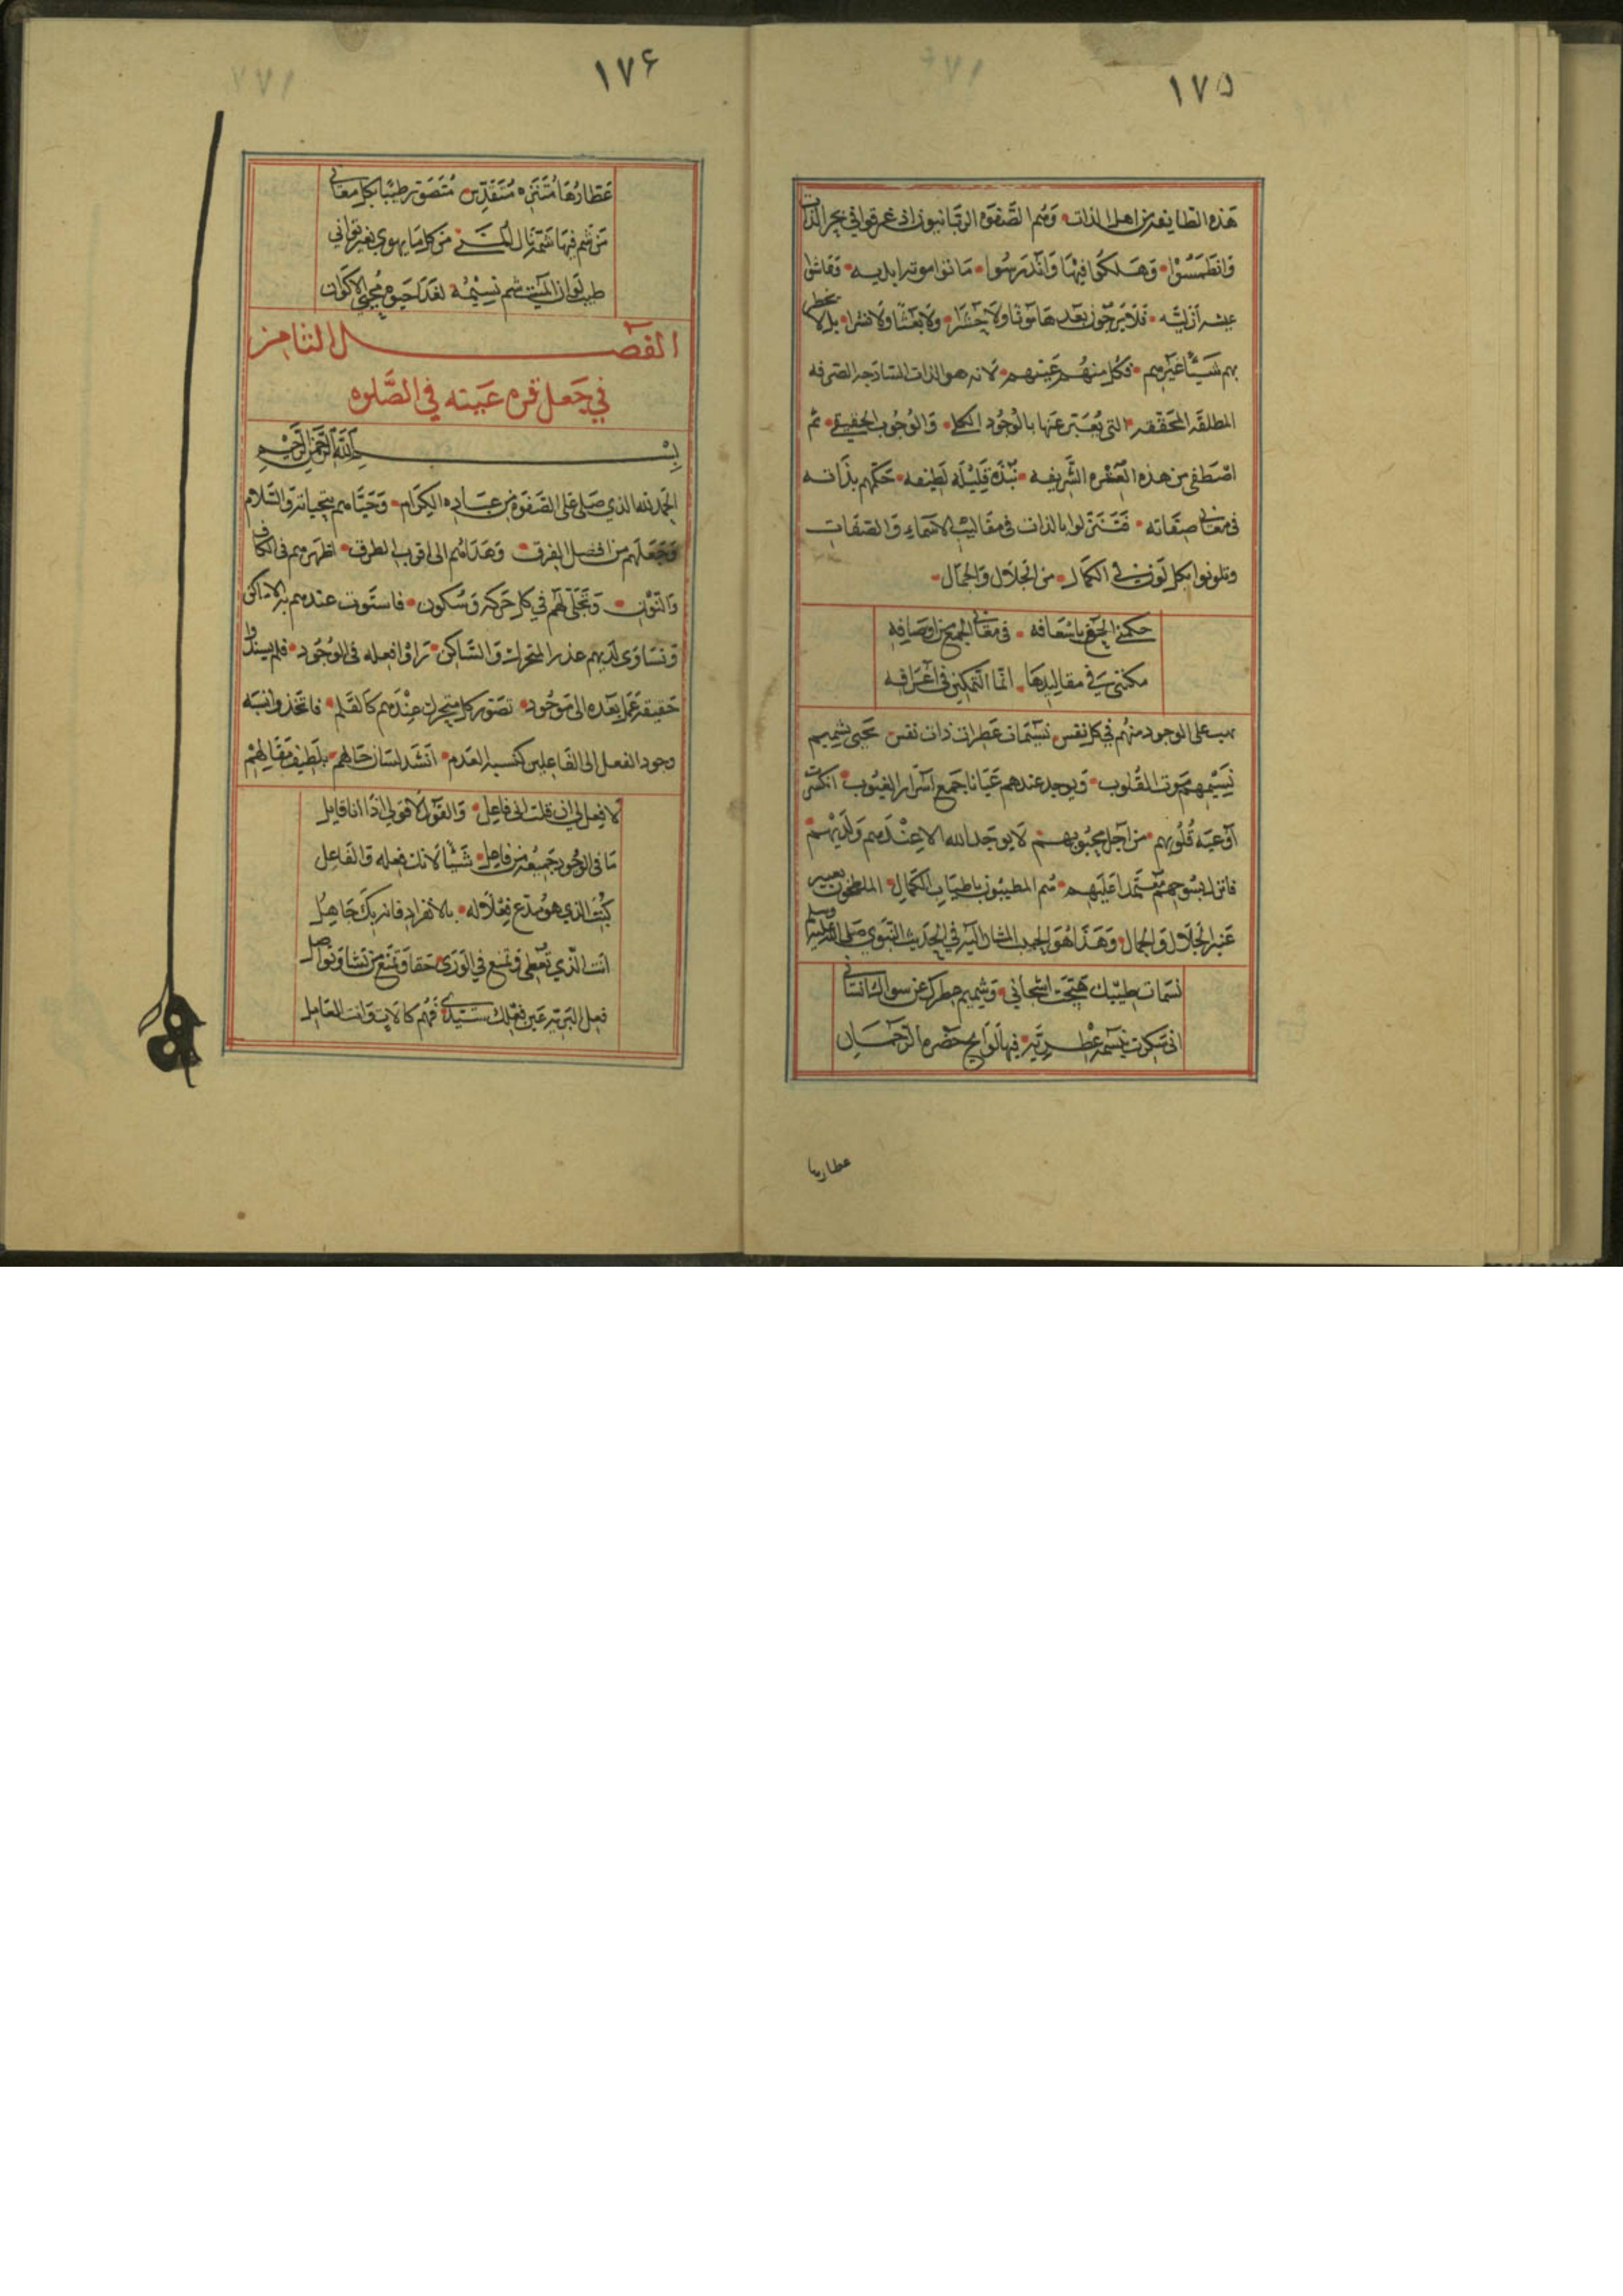 ١٧٥
هذه الطايفة من اهل الذات وهم الصفوه الربانيون اذ غرقوا في بحر الذات
وانطمسوا وهلكوا فيها واندرسوا ماتوا موته ابديه وعاشوا
عيشه ازليه فلا يرجون بعدها موتا ولا حشرا ولا بعثا ولا نشرا بل لا يخطر
بهم شيئا غيرهم فكل منهم عينهم لانه هو الذات الساذجه الصرفه
المطلقه المحققه التي يعبر عنها بالوجود الكلي والوجوب الحقيقي ثم
اصطفى من هذه العتره الشريفه نبذه قليله لطيفه حكمهم بذاته
في معاني صفاته فتنزلوا بالذات في مقاليب الاسماء والصفات
وتلونوا بكل لون في الكمال من الجلال والجمال
حكمني الحق باسعافه في معاني الجمع من اوصافه
مكنني في مقاليدها انما التمكين في اعرافه
يهب على الوجود منهم في كل نفس نسمات عطرات ذات نفس يحيى بشميم
نسيمهم موت القلوب ويوجد عندهم عيانا جميع اسرار الغيوب انكسرت
اوعية قلوبهم من اجل محبوبهم لا يوجد الله الا عندهم ولديهم
فانزل بسوحهم معتمدا عليهم هم المطيبون باطياب الكمال الملطخون بعبير
عنبر الجلال والجمال وهذا هو الحب المشار اليه في الحديث النبوي صلى الله عليه وسلم
نسمات طيبك هيجت اشجاني وشميم عطرك عن سواك انساني
اني سكرت بنسمة عطريه فيها لوايح حضرة الرحمان
عطارها
١٧۶
عطارها متنزه متقدس متصور طيبا بكل معاني
من شم فيها شمة نال المنى من كل ما يهوى بغير تواني
طيب لو ان الميت شم نسيمه لغدا حيوه محيي الاكوان
الفصل الثامن
في جعل قره عينه في الصلوه
بسم الله الرحمن الرحيم
الحمد لله الذي صلى على الصفوة من عباده الكرام وحياهم بتحياته والسلام
وجعلهم من افضل الفرق وهداهم الى اقرب الطرق اظهرهم في الكاف
والنون وتجلى لهم في كل حركه وسكون فاستوت عندهم به الاماكن
وتساوى لديهم عذر المتحرك والساكن تراؤا فعله في الوجود فلم يسندوا
حقيقة عمل بعده الى موجود تصور كل متحرك عندهم كالقلم فاتخذوا نسبه
وجود الفعل الى الفاعلين كنسبة العدم انشد لسان حالهم بلطيف مقالهم
لا فعل لي ان قلت اني فاعل والقول لا قولي اذا انا قايل
ما في الوجود جميعه من فاعل شيئا لانك فعله والفاعل
كبت الذي هو مدع فعلا له بالانفراد فانه بك جاهل
انت الذي تعطي وتمنع في الورى حقا وتمنع من تشا وتواصل
فعل البريه عين فعلك سيدي فهم كالات وانت العامل